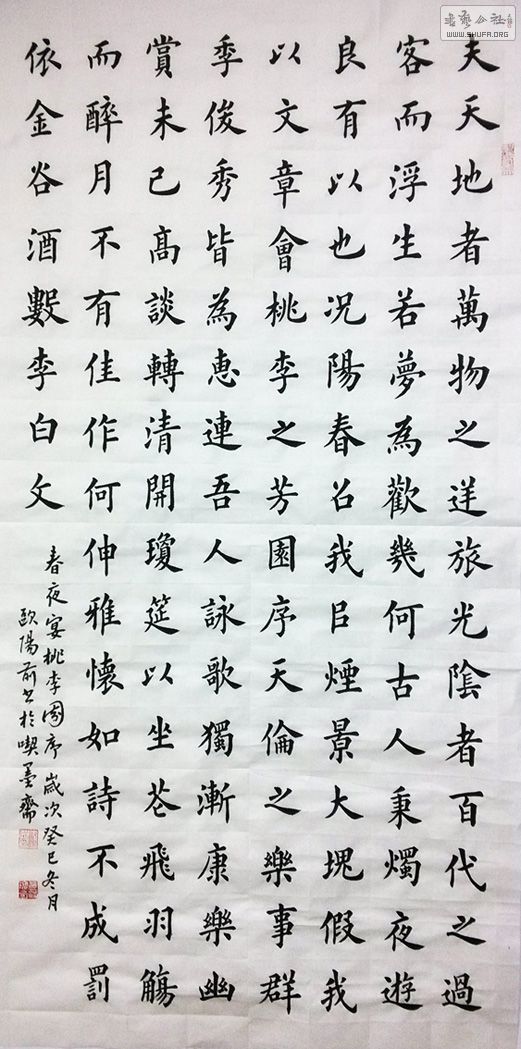 夫天地者萬物之逆旅光陰者百代之過
客而浮生若夢為歡幾何古人秉燭夜遊
良有以也况陽春召我㠯煙景大塊假我
以文章會桃李之芳園序天倫之樂事群
季俊秀皆為惠連吾人詠歌獨漸康樂幽
賞未已髙談轉清開瓊筵以坐花飛羽觴
而醉月不有佳作何伸雅懷如詩不成罰
依金谷酒數李白文
春夜宴桃李園序歲次癸巳冬月
歐陽前書於喫墨齋
書藝公社
WWW.SHUFA.ORG